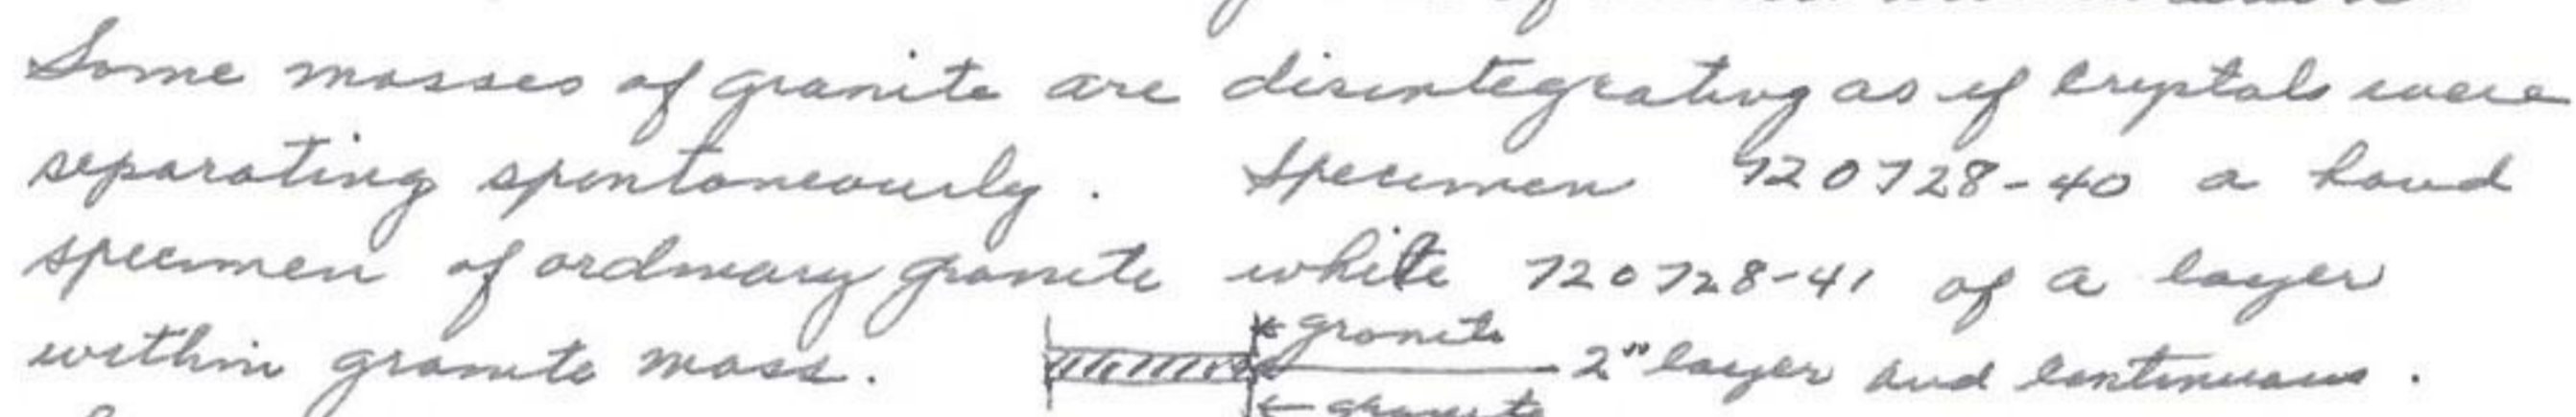 Some masses of granite are disintegrating as if crystals were
separating spontaneously. Specimen 720728-40 a hand
specimen of ordinary granite white 720728-41 of a layer
within granite mass. granite
2" layer and continuous.
granite